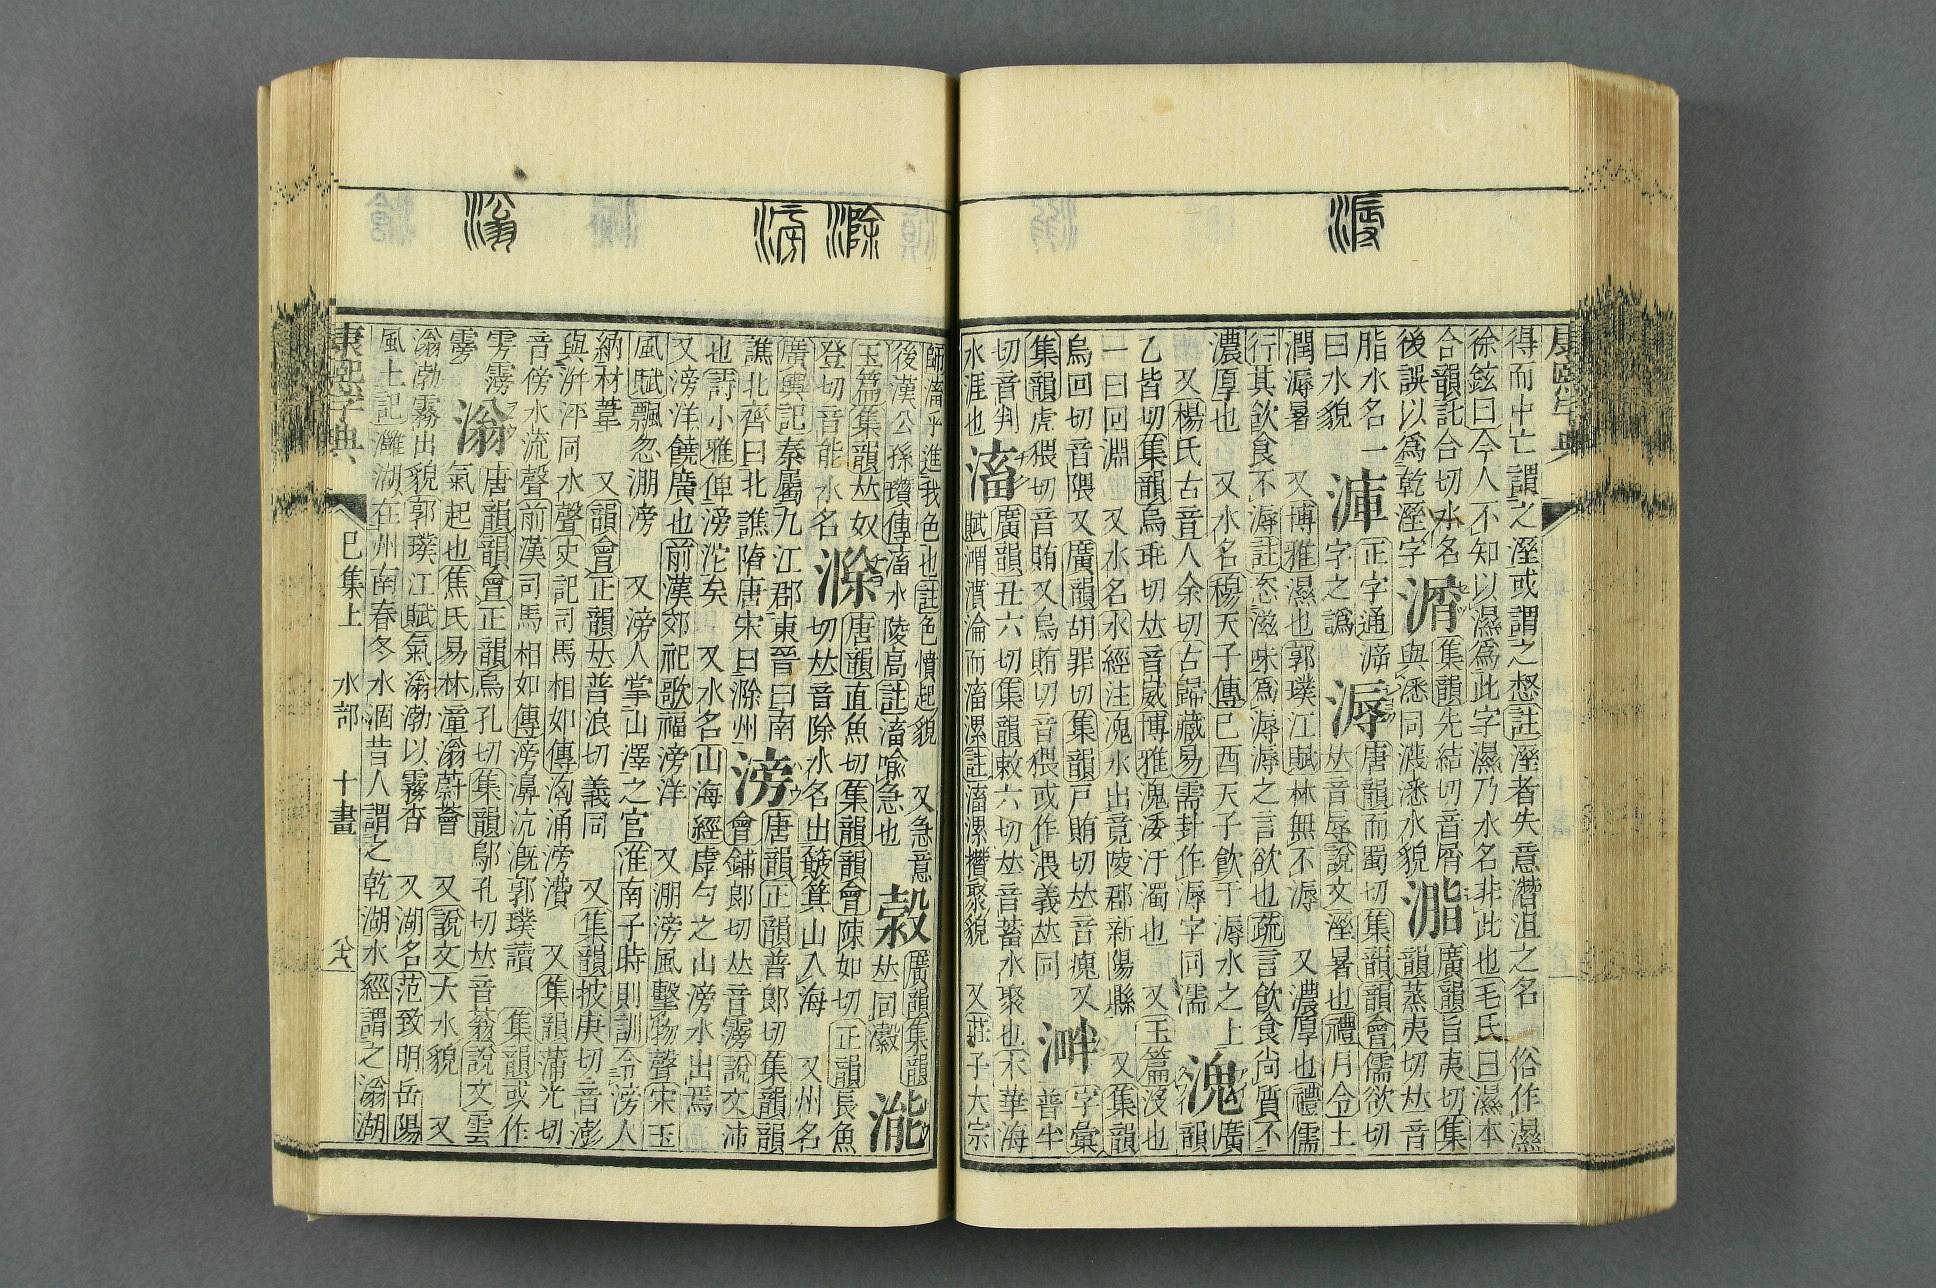 康熙字典
溽
得而中亡謂之溼或謂之惄註溼者失意潛沮之名　俗作濕
徐鉉曰今人不知以濕爲此字濕乃水名非此也毛氏曰濕本
合韻託合切水名
後誤以爲乾溼字
集韻先結切音屑
廣韻旨夷切集
韻蒸夷切𠀤音
脂水名一
曰水貌
正字通
字之譌
溽
唐韻而蜀切集韻韻會儒欲切
𠀤音辱說文溼暑也禮月令土
潤溽暑　又博雅濕也郭璞江賦林無不溽　又濃厚也禮儒
行其飮食不溽註恣滋味爲溽溽之言欲也疏言飮食尚質不
濃厚也　又水名穆天子傳己酉天子飮于溽水之上
又楊氏古音人余切古歸藏易需卦作溽字同濡
溾
廣
韻
乙皆切集韻烏乖切𠀤音崴博雅溾涹汙濁也　又玉篇沒也
一曰回淵　又水名水經注溾水出竟陵郡新陽縣　又集韻
烏回切音隈　又廣韻胡罪切集韻戸賄切𠀤音瘣　又
集韻虎猥切音賄又烏賄切音猥或作渨義𠀤同
溿
字彙
普半
切音判
水涯也
滀
廣韻丑六切集韻敕六切𠀤音蓄水聚也木華海
賦㵢濆淪而滀漯註滀漯攢聚貌　又莊子大宗
滁
滂
滃
師滀乎進我色也註色憤起貌　又急意
後漢公孫瓚傳滀水陵高註滀喩急也
廣韻集韻
𠀤同瀔
玉篇集韻𠀤奴
登切音能水名
滁
唐韻直魚切集韻韻會陳如切　正韻長魚
切𠀤音除水名出皷箕山入海　又州名
廣輿記秦屬九江郡東晉曰南
譙北齊曰北譙隋唐宋曰滁州
滂
唐韻正韻普郞切集韻韻
會鋪郞切𠀤音雱說文沛
也詩小雅俾滂沱矣　又水名山海經虖勺之山滂水出焉
又滂洋饒廣也前漢郊祀歌福滂洋　又淜滂風擊物聲宋玉
風賦飄忽淜滂　又滂人掌山澤之官淮南子時則訓令滂人
納材葦　又韻會正韻𠀤普浪切義同　又集韻披庚切音澎
與洴泙同水聲史記司馬相如傳洶涌滂㵒　又集韻蒲光切
音傍水流聲前漢司馬相如傳滂濞沆漑郭璞讀　集韻或作
雱霶
滃
唐韻韻會正韻烏孔切集韻鄔孔切𠀤音蓊說文雲
氣起也焦氏易林潼滃蔚薈　又說文大水貌　又
滃渤霧出貌郭璞江賦氣滃渤以霧杳　又湖名范致明岳陽
風土記灉湖在州南春冬水涸昔人謂之乾湖水經謂之滃湖
康熙字典　巳集上　水部　十畫